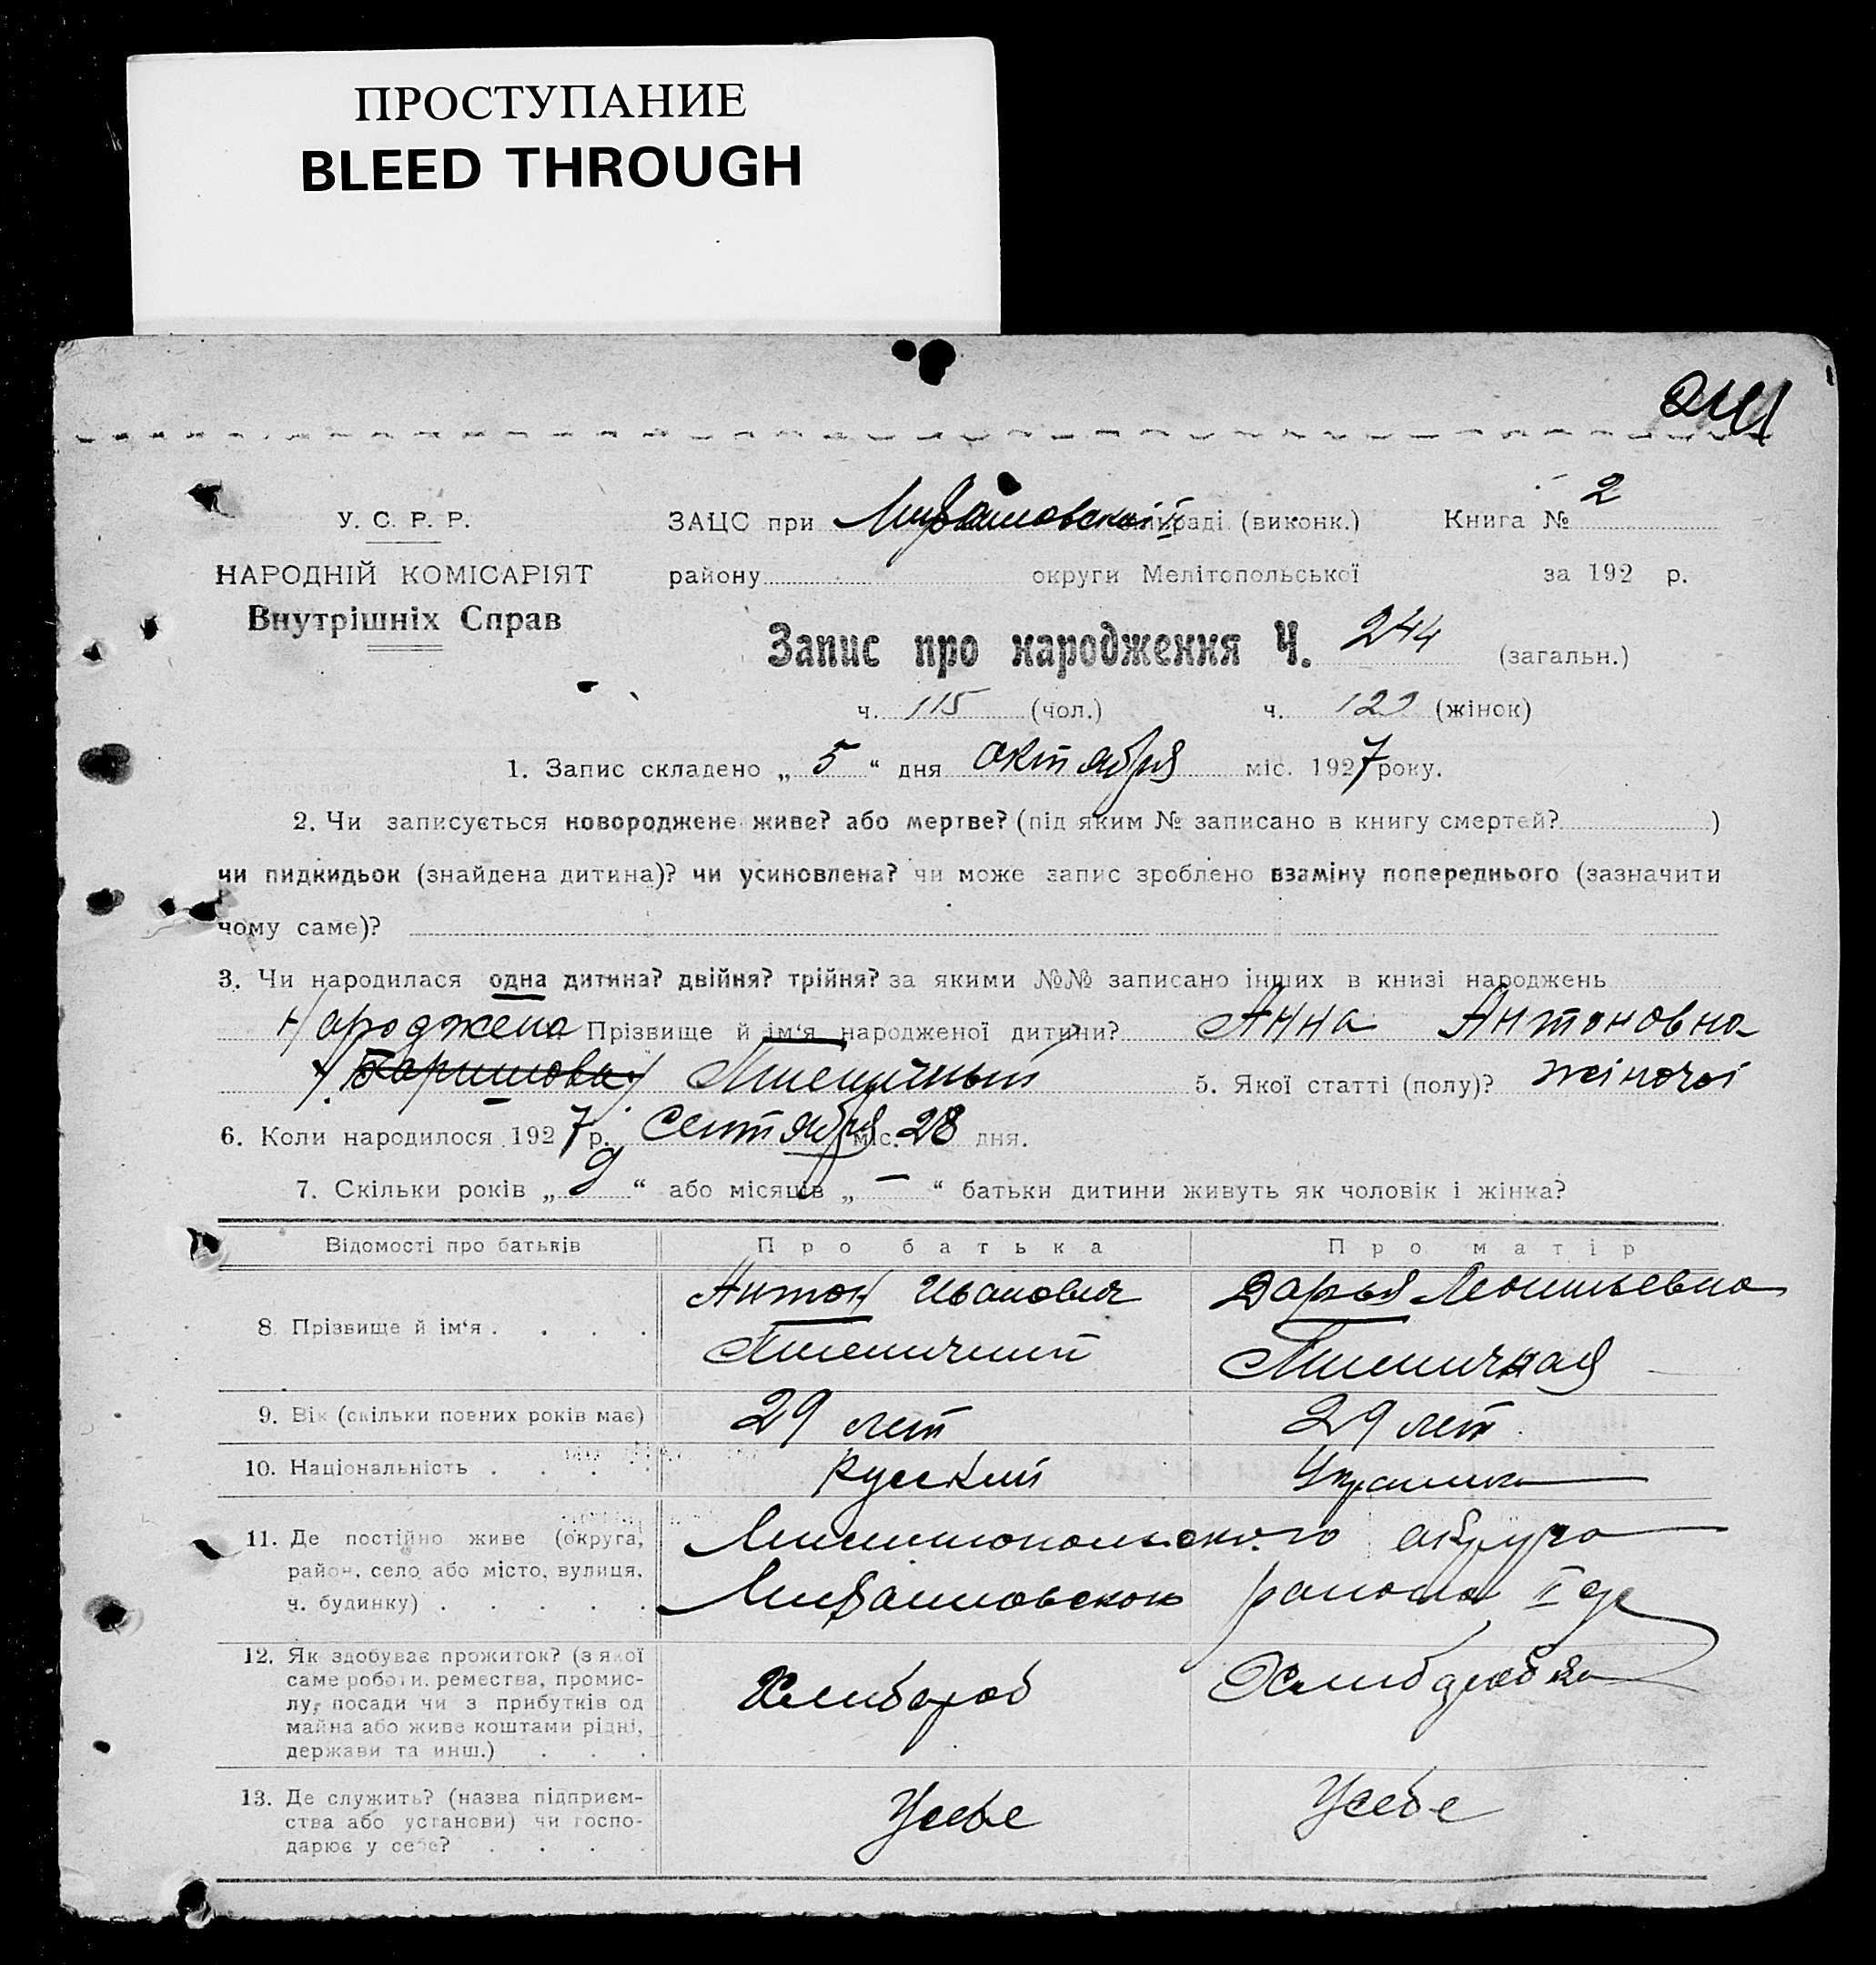 ПРОСТУПАНИЕ
BLEED THROUGH
У. С. Р. Р.
НАРОДНІЙ КОМІСАРІЯТ
Внутрішніх Справ
ЗАЦС при раді (виконк.) Книга № 2
району округи Мелітопольської за 192 р.
Запис про народження Ч. 244 (загальн.)
ч. 115 (чол.) ч. (жінок)
1. Запис складено „ 5 “ дня октября міс. 1927 року.
2. Чи записується новороджене живе? або мертве? (під яким № записано в книгу смертей? )
чи пидкидьок (знайдена дитина)? чи усиновлена? чи може запис зроблено взаміну попереднього (зазначити
чому саме)?
3. Чи народилася одна дитина? двійня? трійня? за якими №№ записано інших в книзі народжень
Народжена Прізвище й ім‘я народженої дитини? Анна Антоновна
Пшеничный 5. Якої статті (полу)? жіночої
6. Коли народилося 1927 р. Сентября міс. 28 дня.
7. Скільки років „ 9 “ або місяців „ — “ батьки дитини живуть як чоловік і жінка?
Відомості про батьків Про батька Про матір
8. Прізвище й ім‘я . . . . .
Антон Иванович
Пшеничний
Дарья Леонтьевна
Пшеничная
9. Вік (скільки повних років має) 29 лет 29 лет
10. Національність . . . . Русский Украинка
11. Де постійно живе (округа,
район, село або місто, вулиця,
ч. будинку) . . . . .
округа
района II
12. Як здобуває прожиток? (з якої
саме роботи, ремества, промис-
лу, посади чи з прибутків од
майна або живе коштами рідні,
держави та инш.) . . .
Хлибороб
Хлиборобка
13. Де служить? (назва підприєм-
ства або установи) чи госпо-
дарює у себе? . . . .
У себе
У себе